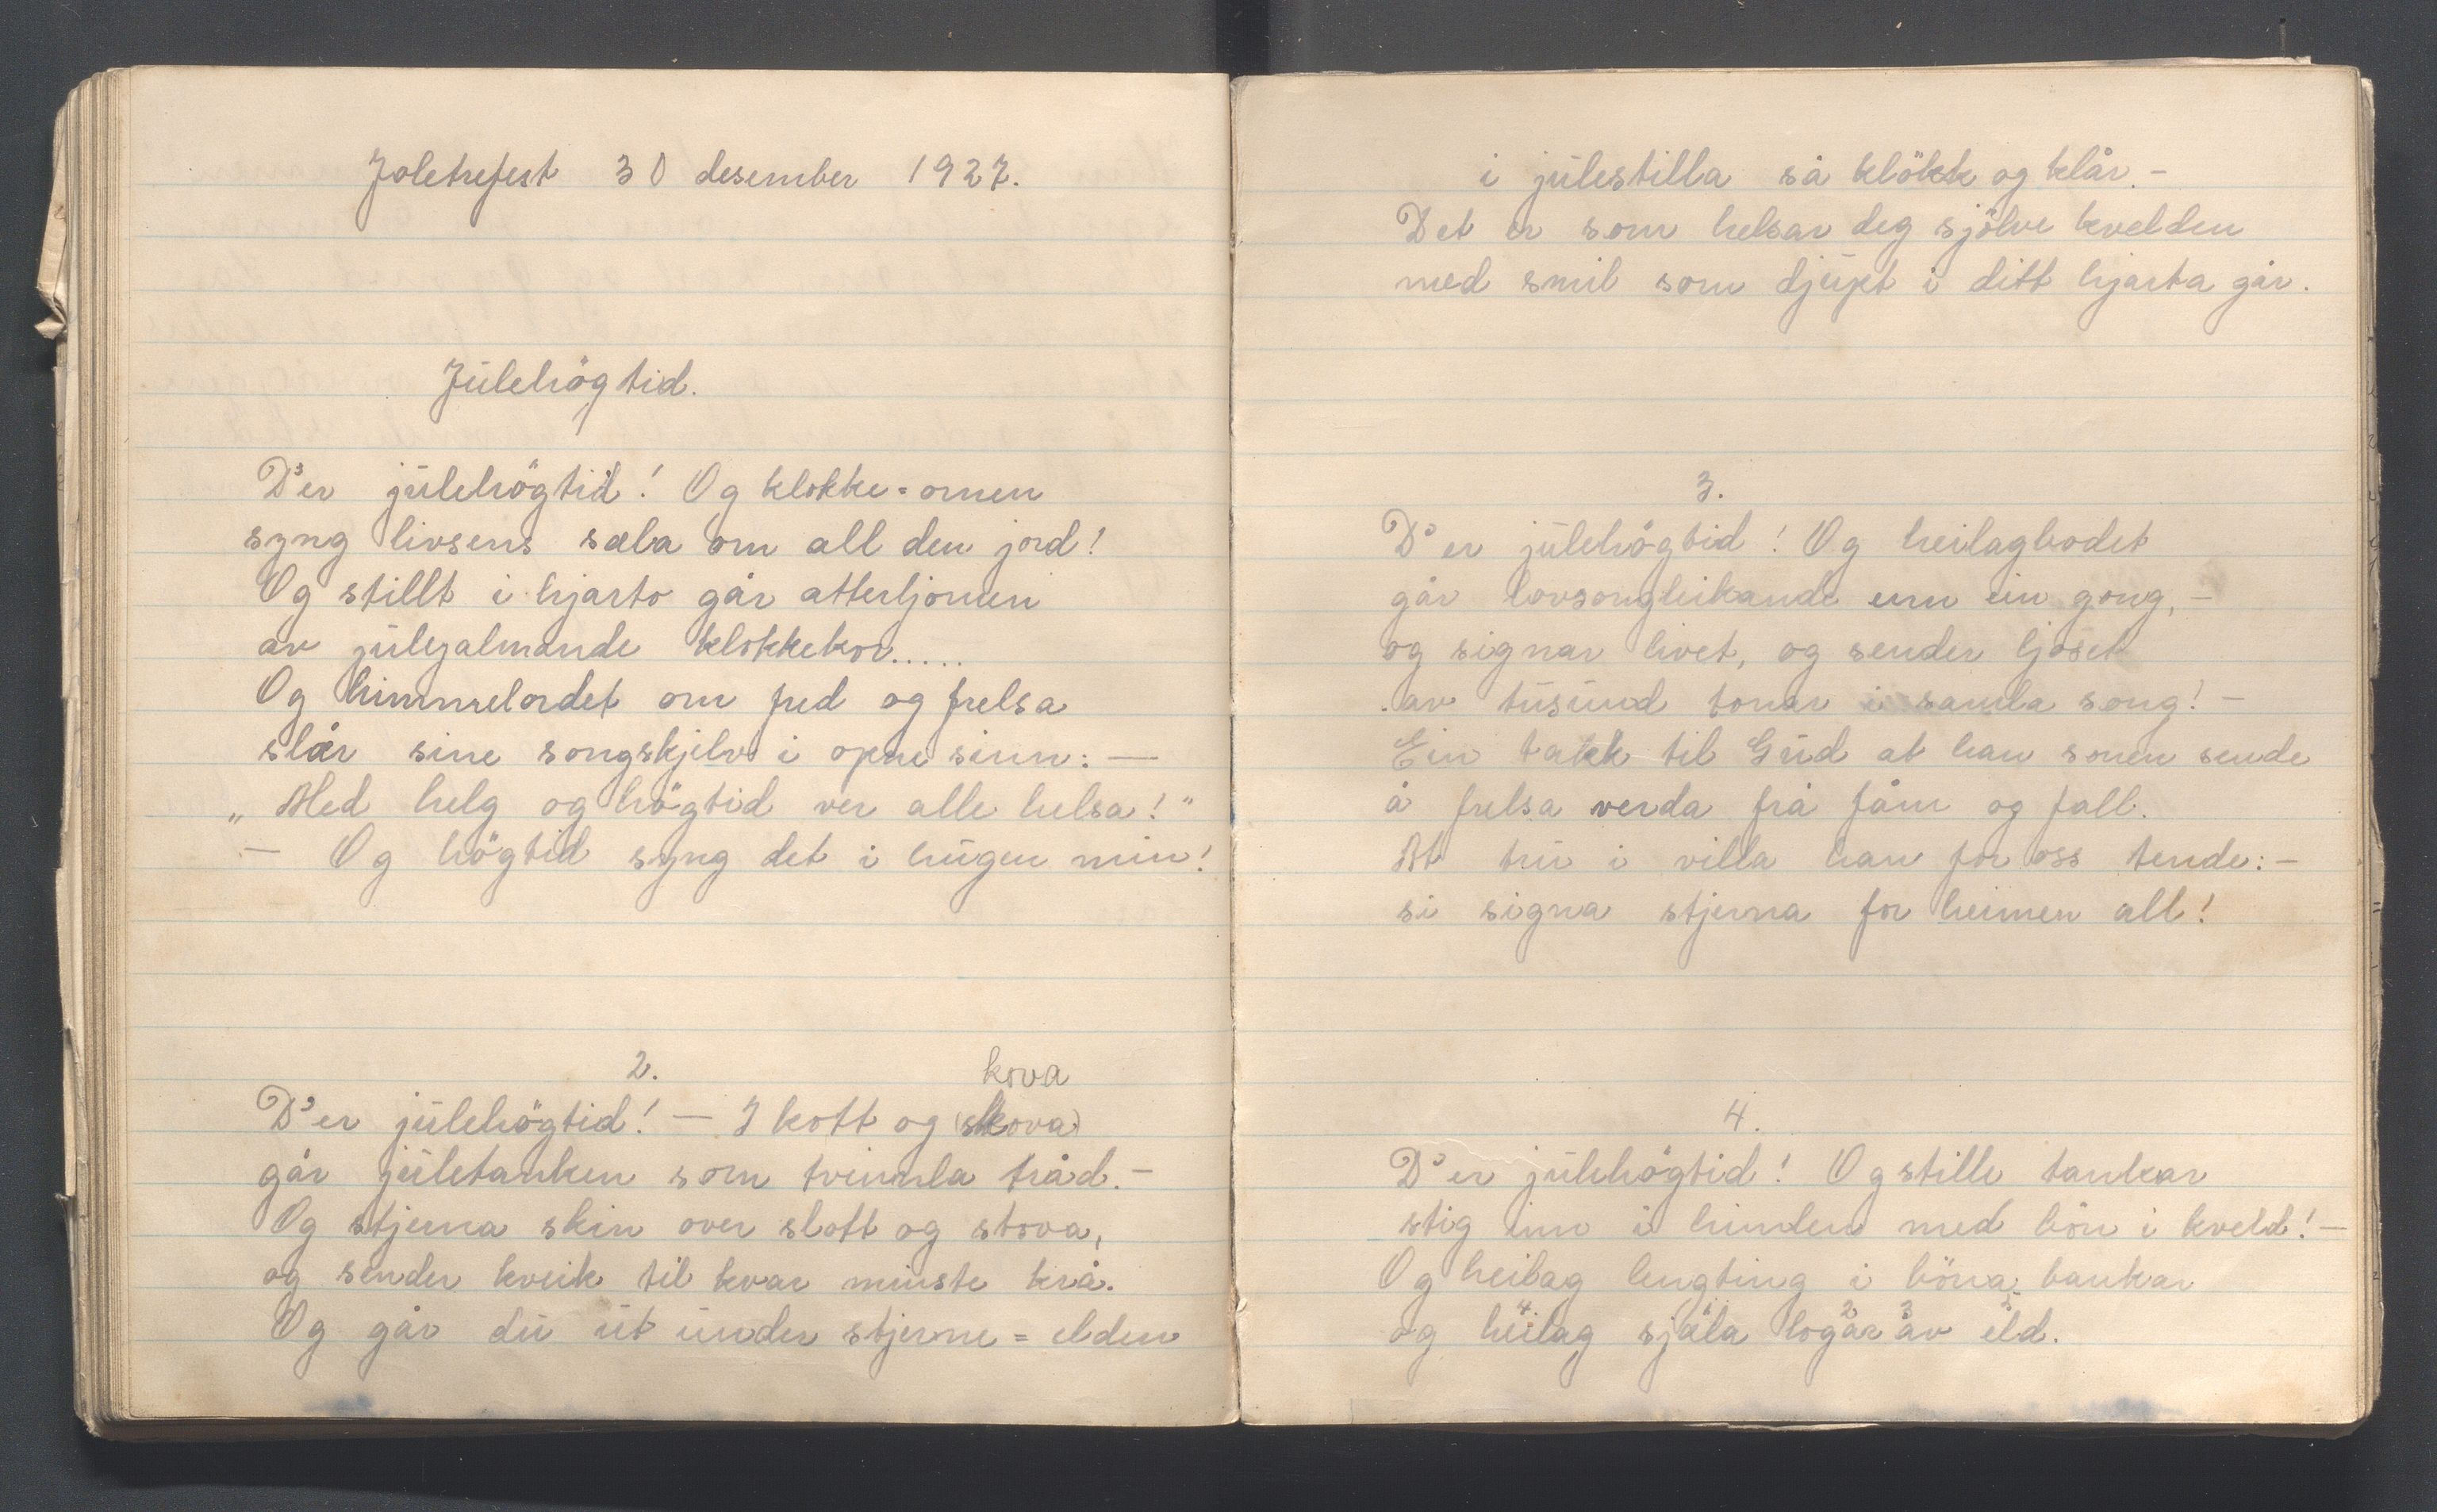 Joletrefest 30 desember 1927.
Julehögtid.
D'er julehögtid! Og klokke=omen
syng livsens sæla om all den jord!
Og stillt i hjarto går atterljomen
av julejalmande klokkekor.....
Og himmelordet om fred og frelsa
slær sine songskjelv i opne sinn: —
„Med helg og högtid ver alle helsa!"
— Og högtid syng det i hugen min!
2.
kova
D'er julehögtid! — I kott og (skova)
går juletanken som tvinnla tråd. –
Og stjerna skin over slott og stova,
og sender kveik til kvar minste krå.
Og går du ut under stjerne=elden
i julestilla så klökk og klår. –
Det er som helsar deg sjölve kvelden
med smil som djupt i ditt hjarta går.
3.
D'er julehögtid! Og heilagbodet
går lovsongleikande enn ein gong, –
og signar livet, og sender ljoset
av tusund tonar i samla song! –
Ein takk til Gud at han sonen sende
å frelsa verda frå fåm og fall.
At tru i villa han for oss tende: –
si signa stjerna for heimen all!
4.
D'er julehögtid! Og stille tankar
stig inn i hinden med bön i kveld! –
Og heilag lengting i böna bankar
og heilag sjæla logar av eld.